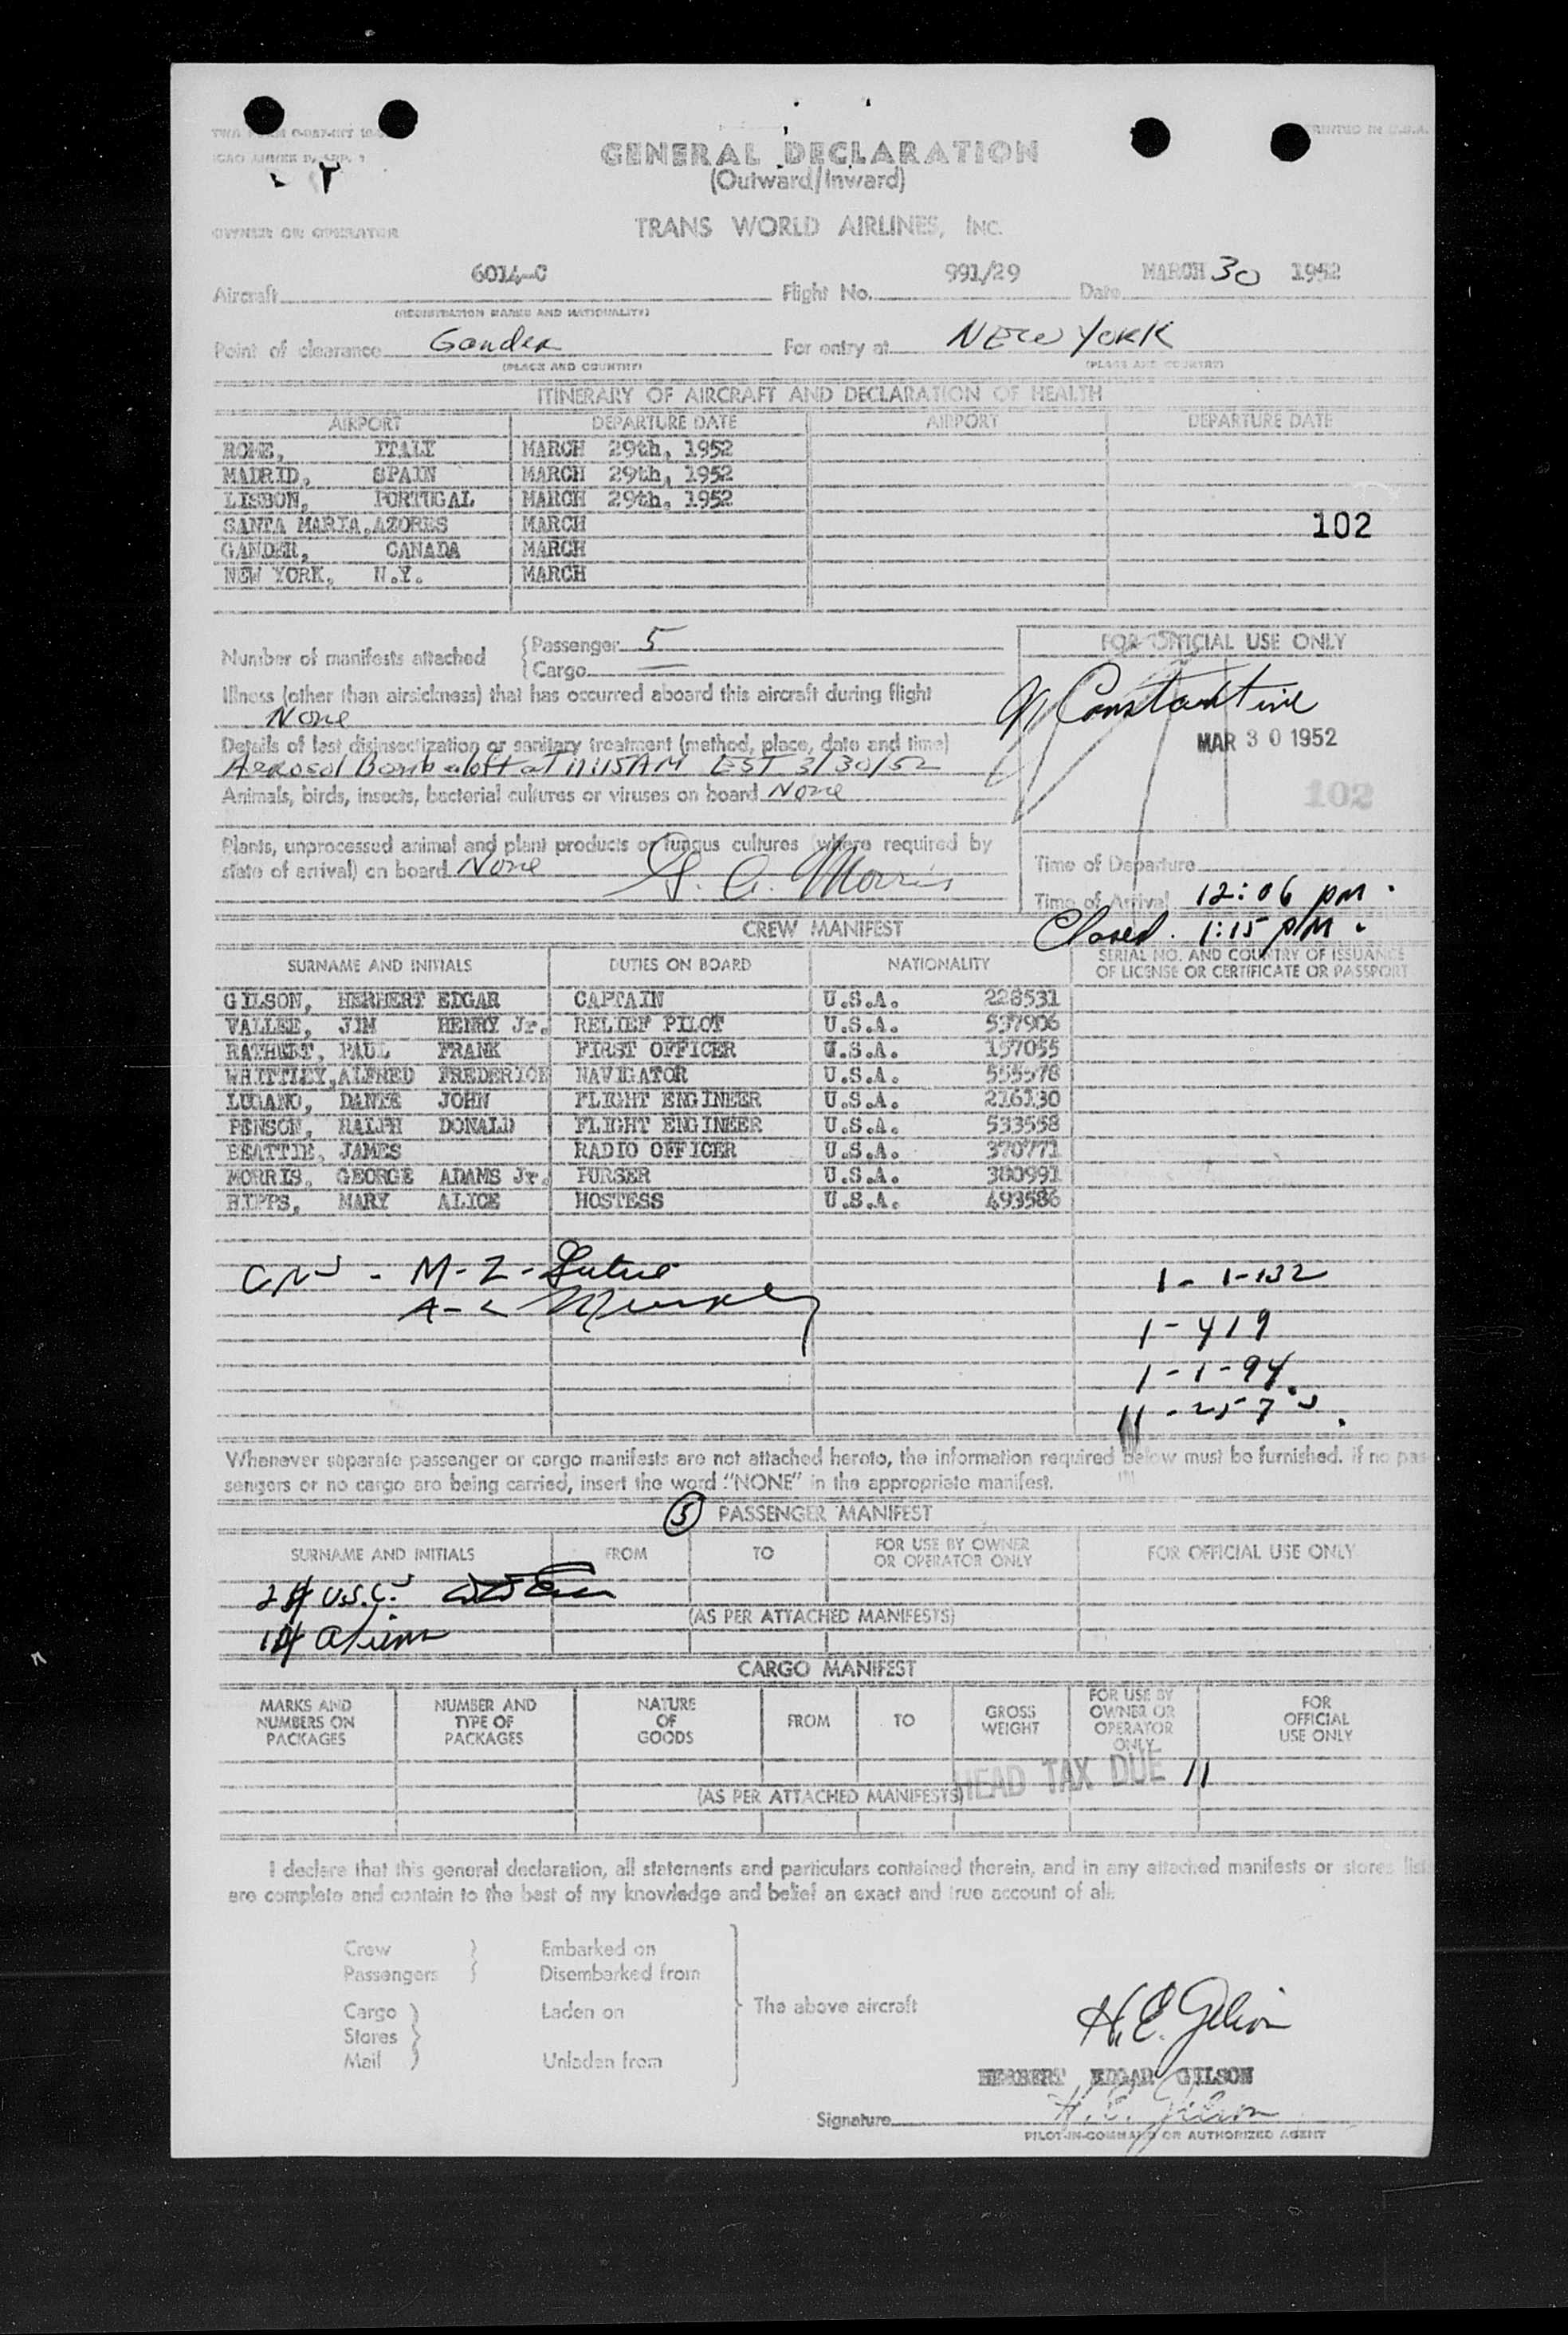 PRINTED IN U.S.A.
GENERAL DECLARATION
(Outward/Inward)
OWNER OR OPERATOR TRANS WORLD AIRLINES, INC.
Aircraft 6014-C Flight No. 991/29 Date MARCH 30 1952
(REGISTRATION MARKS AND NATIONALITY)
Point of clearance Gander For entry at NEW YORK
(PLACE AND COUNTRY) (PLACE AND COUNTRY)
ITINERARY OF AIRCRAFT AND DECLARATION OF HEALTH
AIRPORT DEPARTURE DATE AIRPORT DEPARTURE DATE
ROME, ITALY MARCH 29th, 1952
MADRID, SPAIN MARCH 29th, 1952
LISBON, PORTUGAL MARCH 29th, 1952
SANTA MARIA, AZORES MARCH 102
GANDER, CANADA MARCH
NEW YORK, N.Y. MARCH
Number of manifests attached
Passenger 5
Cargo
FOR OFFICIAL USE ONLY
Illness (other than airsickness) that has occurred aboard this aircraft during flight
None
Constantine
MAR 30 1952
Details of last disinsectization or sanitary treatment (method, place, date and time)
Aerosol Bomb aloft at 11:15AM EST 3/30/52
Animals, birds, insects, bacterial cultures or viruses on board None
102
Plants, unprocessed animal and plant products or fungus cultures (where required by
state of arrival) on board None G. A. Morris
Time of Departure
Time of Arrival 12:06 pm
Closed 1:15 pM
CREW MANIFEST
SURNAME AND INITIALS DUTIES ON BOARD NATIONALITY SERIAL NO. AND COUNTRY OF ISSUANCE
OF LICENSE OR CERTIFICATE OR PASSPORT
GILSON, HERBERT EDGAR CAPTAIN U.S.A. 228531
VALLEE, JIM HENRY Jr. RELIEF PILOT U.S.A. 537906
RATHERT, PAUL FRANK FIRST OFFICER U.S.A. 157055
WHITTLEY, ALFRED FREDERICK NAVIGATOR U.S.A. 555578
LUGANO, DANTE JOHN FLIGHT ENGINEER U.S.A. 216130
PENSON, RALPH DONALD FLIGHT ENGINEER U.S.A. 533558
BEATTIE, JAMES RADIO OFFICER U.S.A. 370771
MORRIS, GEORGE ADAMS Jr. PURSER U.S.A. 380991
HIPPS, MARY ALICE HOSTESS U.S.A. 493586
1-1-132
1-419
1-1-94
Whenever separate passenger or cargo manifests are not attached hereto, the information required below must be furnished. If no pas-
sengers or no cargo are being carried, insert the word "NONE" in the appropriate manifest.
5 PASSENGER MANIFEST
SURNAME AND INITIALS FROM TO FOR USE BY OWNER
OR OPERATOR ONLY FOR OFFICIAL USE ONLY
U.S.C.
(AS PER ATTACHED MANIFESTS)
CARGO MANIFEST
MARKS AND
NUMBERS ON
PACKAGES
NUMBER AND
TYPE OF
PACKAGES
NATURE
OF
GOODS
FROM
TO
GROSS
WEIGHT
FOR USE BY
OWNER OR
OPERATOR
ONLY
FOR
OFFICIAL
USE ONLY
HEAD TAX DUE 11
(AS PER ATTACHED MANIFESTS)
I declare that this general declaration, all statements and particulars contained therein, and in any attached manifests or stores list
are complete and contain to the best of my knowledge and belief an exact and true account of all:
Crew Embarked on
Passengers Disembarked from
Cargo Laden on The above aircraft
Stores
Mail Unladen from
H.E. Gilson
HERBERT EDGAR GILSON
Signature H. E. Gilson
PILOT-IN-COMMAND OR AUTHORIZED AGENT